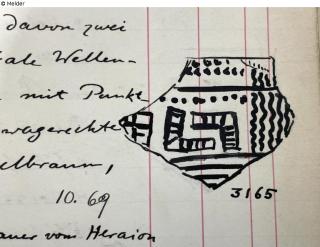 © Melder
davon zwei
ale Wellen-
mit Punkt-
wagerechte
elbraun,
10. 69
3165
auer vom Heraion